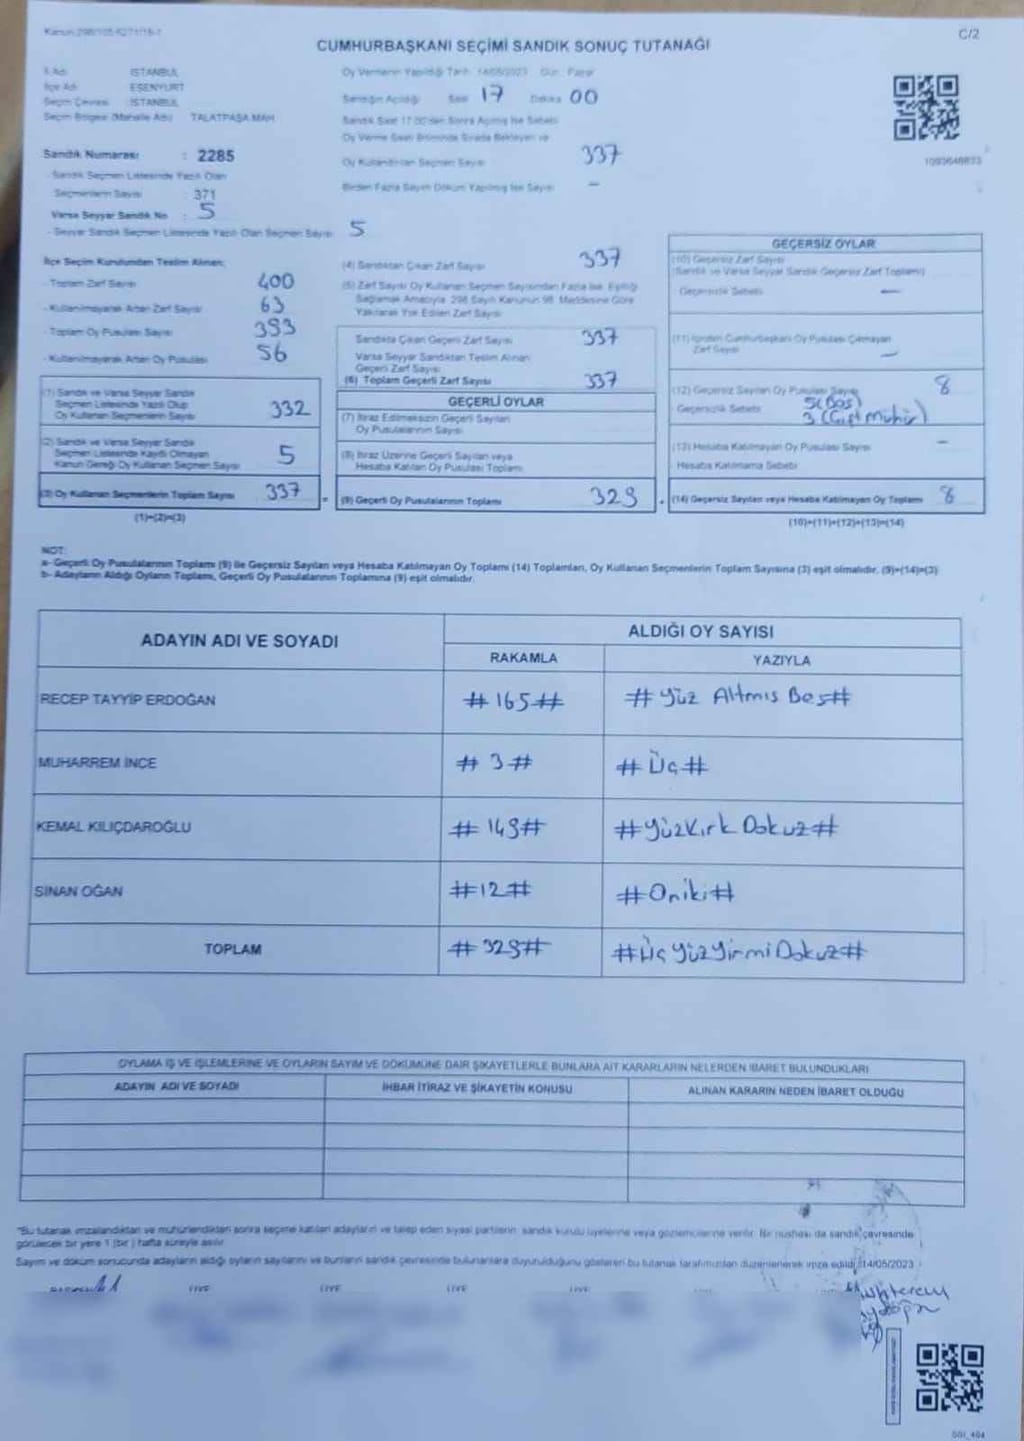 C/2
CUMHURBAŞKANI SEÇİMİ SANDIK SONUÇ TUTANAĞI
İl Adı : İSTANBUL
İlçe Adı : ESENYURT
Seçim Çevresi : İSTANBUL
Seçim Bölgesi (Mahalle Adı) : TALATPAŞA MAH.
Sandık Numarası : 2285
- Sandık Seçmen Listesinde Yazılı Olan
Seçmenlerin Sayısı : 371
Varsa Seyyar Sandık No : 5
- Seyyar Sandık Seçmen Listesinde Yazılı Olan Seçmen Sayısı 5
Oy Vermenin Yapıldığı Tarih : 14/05/2023 Gün : Pazar
Sandığın Açıldığı Saat 17 Dakika 00
Sandık Saat 17.00'den Sonra Açılmış İse Sebebi
Oy Verme Saati Bitiminde Sırada Bekleyen ve
Oy Kullandırılan Seçmen Sayısı 337
Birden Fazla Sayım Döküm Yapılmış İse Sayısı –
İlçe Seçim Kurulundan Teslim Alınan;
- Toplam Zarf Sayısı 400
- Kullanılmayarak Artan Zarf Sayısı 63
- Toplam Oy Pusulası Sayısı 393
- Kullanılmayarak Artan Oy Pusulası 56
(1) Sandık ve Varsa Seyyar Sandık
Seçmen Listesinde Yazılı Olup
Oy Kullanan Seçmenlerin Sayısı 332
(2) Sandık ve Varsa Seyyar Sandık
Seçmen Listesinde Kayıtlı Olmayan
Kanun Gereği Oy Kullanan Seçmen Sayısı 5
(3) Oy Kullanan Seçmenlerin Toplam Sayısı 337
(1)+(2)=(3)
(4) Sandıktan Çıkan Zarf Sayısı 337
(5) Zarf Sayısı Oy Kullanan Seçmen Sayısından Fazla İse, Eşitliği
Sağlamak Amacıyla 298 Sayılı Kanunun 98. Maddesine Göre
Yakılarak Yok Edilen Zarf Sayısı
Sandıkta Çıkan Geçerli Zarf Sayısı 337
Varsa Seyyar Sandıktan Teslim Alınan
Geçerli Zarf Sayısı
(6) Toplam Geçerli Zarf Sayısı 337
GEÇERLİ OYLAR
(7) İtiraz Edilmeksizin Geçerli Sayılan
Oy Pusulalarının Sayısı
(8) İtiraz Üzerine Geçerli Sayılan veya
Hesaba Katılan Oy Pusulası Toplamı
(9) Geçerli Oy Pusulalarının Toplamı 329
GEÇERSİZ OYLAR
(10) Geçersiz Zarf Sayısı
(Sandık ve Varsa Seyyar Sandık Geçersiz Zarf Toplamı)
Geçersizlik Sebebi –
(11) İçinden Cumhurbaşkanı Oy Pusulası Çıkmayan
Zarf Sayısı –
(12) Geçersiz Sayılan Oy Pusulası Sayısı 8
Geçersizlik Sebebi 5(Boş)
3 (Çift Mühür)
(13) Hesaba Katılmayan Oy Pusulası Sayısı –
Hesaba Katılmama Sebebi
(14) Geçersiz Sayılan veya Hesaba Katılmayan Oy Toplamı 8
(10)+(11)+(12)+(13)=(14)
NOT:
a- Geçerli Oy Pusulalarının Toplamı (9) ile Geçersiz Sayılan veya Hesaba Katılmayan Oy Toplamı (14) Toplamları, Oy Kullanan Seçmenlerin Toplam Sayısına (3) eşit olmalıdır. (9)+(14)=(3)
b- Adayların Aldığı Oyların Toplamı, Geçerli Oy Pusulalarının Toplamına (9) eşit olmalıdır.
ADAYIN ADI VE SOYADI
ALDIĞI OY SAYISI
RAKAMLA YAZIYLA
RECEP TAYYİP ERDOĞAN #165# #Yüz Altmış Beş#
MUHARREM İNCE #3# #Üç#
KEMAL KILIÇDAROĞLU #149# #YüzKırk Dokuz#
SİNAN OĞAN #12# #Oniki#
TOPLAM #329# #ÜçYüzYirmiDokuz#
OYLAMA İŞ VE İŞLEMLERİNE VE OYLARIN SAYIM VE DÖKÜMÜNE DAİR ŞİKAYETLERLE BUNLARA AİT KARARLARIN NELERDEN İBARET BULUNDUKLARI
ADAYIN ADI VE SOYADI İHBAR İTİRAZ VE ŞİKAYETİN KONUSU ALINAN KARARIN NEDEN İBARET OLDUĞU
"Bu tutanak imzalandıktan ve mühürlendikten sonra seçime katılan adayların ve talep eden siyasi partilerin sandık kurulu üyelerine veya gözlemcilerine verilir. Bir nüshası da sandık çevresinde
görülecek bir yere 1 (bir) hafta süreyle asılır.
Sayım ve döküm sonucunda adayların aldığı oyların sayılarını ve bunların sandık çevresinde bulunanlara duyurulduğunu gösteren bu tutanak tarafımızdan düzenlenerek imza edildi. 14/05/2023
ÜYE ÜYE ÜYE ÜYE